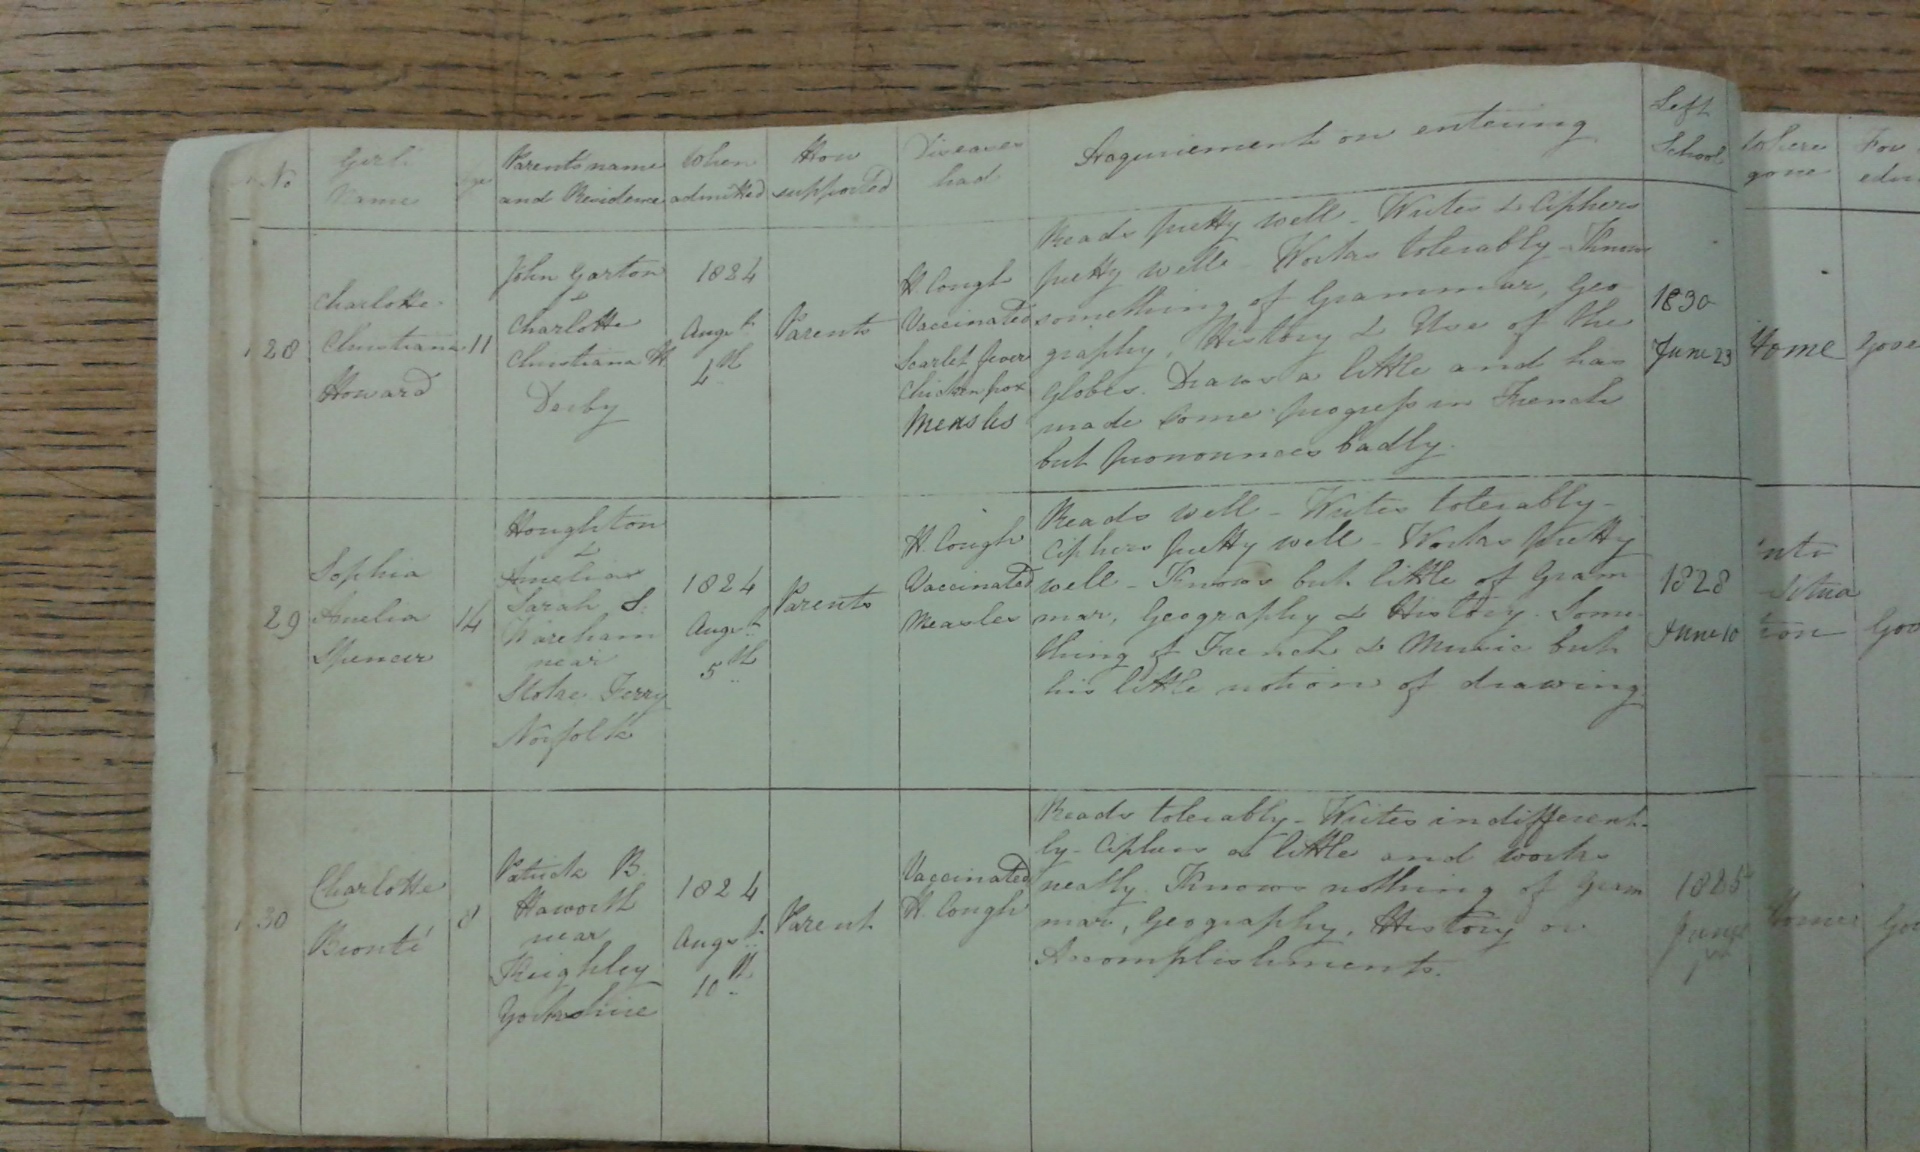 No
Girl's
Name
Age
Parents name
and Residence
When
admitted
How
supported
Diseases
had
Acquirements on entering
Left
School
Where
gone
For
edu
28
Charlotte
Christiana
Howard
11
John Garton
&
Charlotte
Christiana H
Derby
1824
Augst
4th
Parents
H. Cough
Vaccinated
Scarlet fever
Chicken pox
Measles
Reads pretty well - Writes & Ciphers
pretty well - Works tolerably - Knows
something of Grammar, Geo
graphy, History & Use of the
Globes. Draws a little and has
made some progress in French
but pronounces badly.
1830
June 23
Home
Gove
29
Sophia
Amelia
Spencer
14
Houghton
&
Amelia
Sarah S.
Wareham
near
Stoke Ferry
Norfolk
1824
Augst
5th
Parents
H. Cough
Vaccinated
Measles
Reads well - Writes tolerably -
Ciphers pretty well - Works pretty
well - Knows but little of Gram
mar, Geography & History. Some
thing of French & Music but
his little notion of drawing
1828
June 10
into
situa
tion
Gov
30
Charlotte
Bronté
8
Patrick B.
Haworth
near
Keighley
Yorkshire
1824
Augst
10th
Parent
Vaccinated
H. Cough
Reads tolerably - Writes indifferent-
ly - Ciphers a little and works
neatly. Knows nothing of Gram
mar, Geography, History or
Accomplishments.
1825
June
1st
Home
Gov